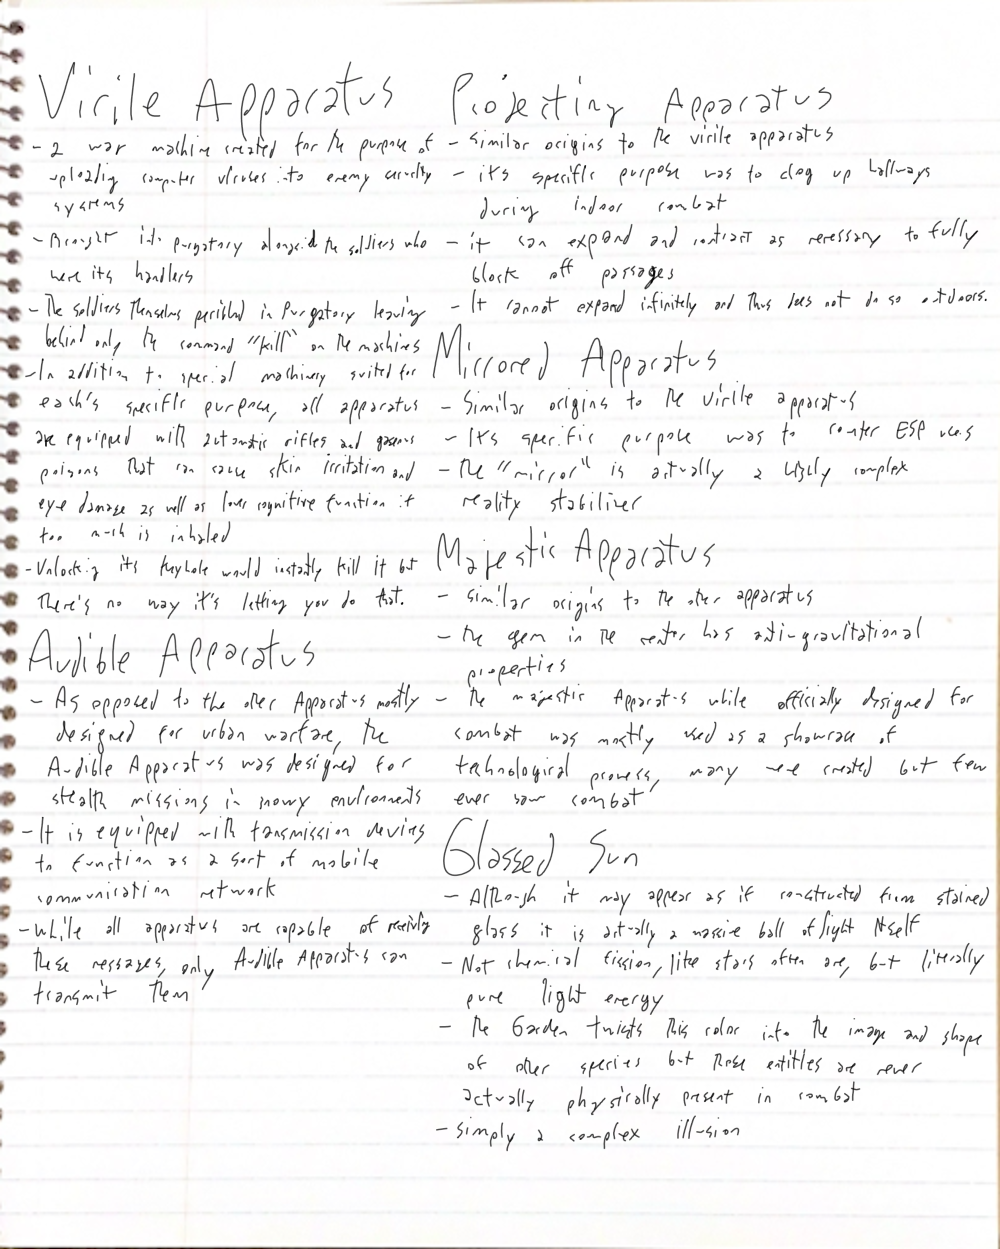 Virile Apparatus
- a war machine created for the purpose of
uploading computer viruses into enemy security
systems
- Brought into purgatory alongside the soldiers who
were its handlers
- The soldiers themselves perished in Purgatory leaving
behind only the command "kill" on the machines
- In addition to special machinery suited for
each's specific purpose, all apparatus
are equipped with automatic rifles and gaseous
poisons that can cause skin irritation and
eye damage as well as lower cognitive function if
too much is inhaled
- Unlocking its keyhole would instantly kill it but
There's no way it's letting you do that.
Audible Apparatus
- As opposed to the other Apparatus mostly
designed for urban warfare, the
Audible Apparatus was designed for
stealth missions in snowy environments
- It is equipped with transmission devices
to function as a sort of mobile
communication network
- while all apparatus are capable of receiving
these messages, only Audible Apparatus can
transmit them
Projecting Apparatus
- Similar origins to the virile apparatus
- it's specific purpose was to clog up hallways
during indoor combat
- it can expand and contract as necessary to fully
block off passages
- It cannot expand infinitely and thus does not do so outdoors.
Mirrored Apparatus
- Similar origins to the virile apparatus
- It's specific purpose was to counter ESP users
- the "mirror" is actually a highly complex
reality stabilizer
Majestic Apparatus
- similar origins to the other apparatus
- the gem in the center has anti-gravitational
properties
- the majestic Apparatus while officially designed for
combat was mostly used as a showcase of
technological prowess, many were created but few
ever saw combat
Glassed Sun
- Although it may appear as if constructed from stained
glass it is actually a massive ball of light itself
- Not chemical fission, like stars often are, but literally
pure light energy
- the Garden twists this color into the image and shape
of other species but these entities are never
actually physically present in combat
- simply a complex illusion